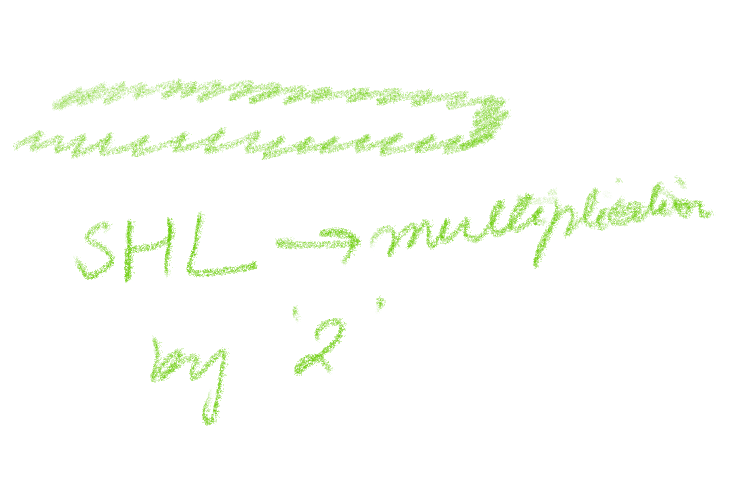 SHL → multiplication
by '2'